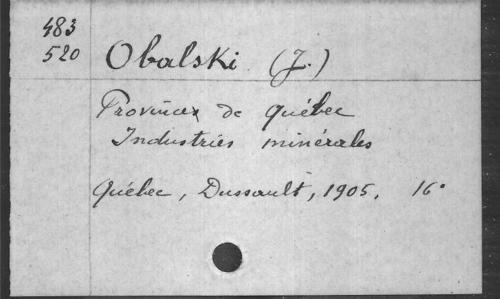 483
520
Obalski (J.)
Province de Québec
Industries minérales
Québec, Dussault, 1905. 16°